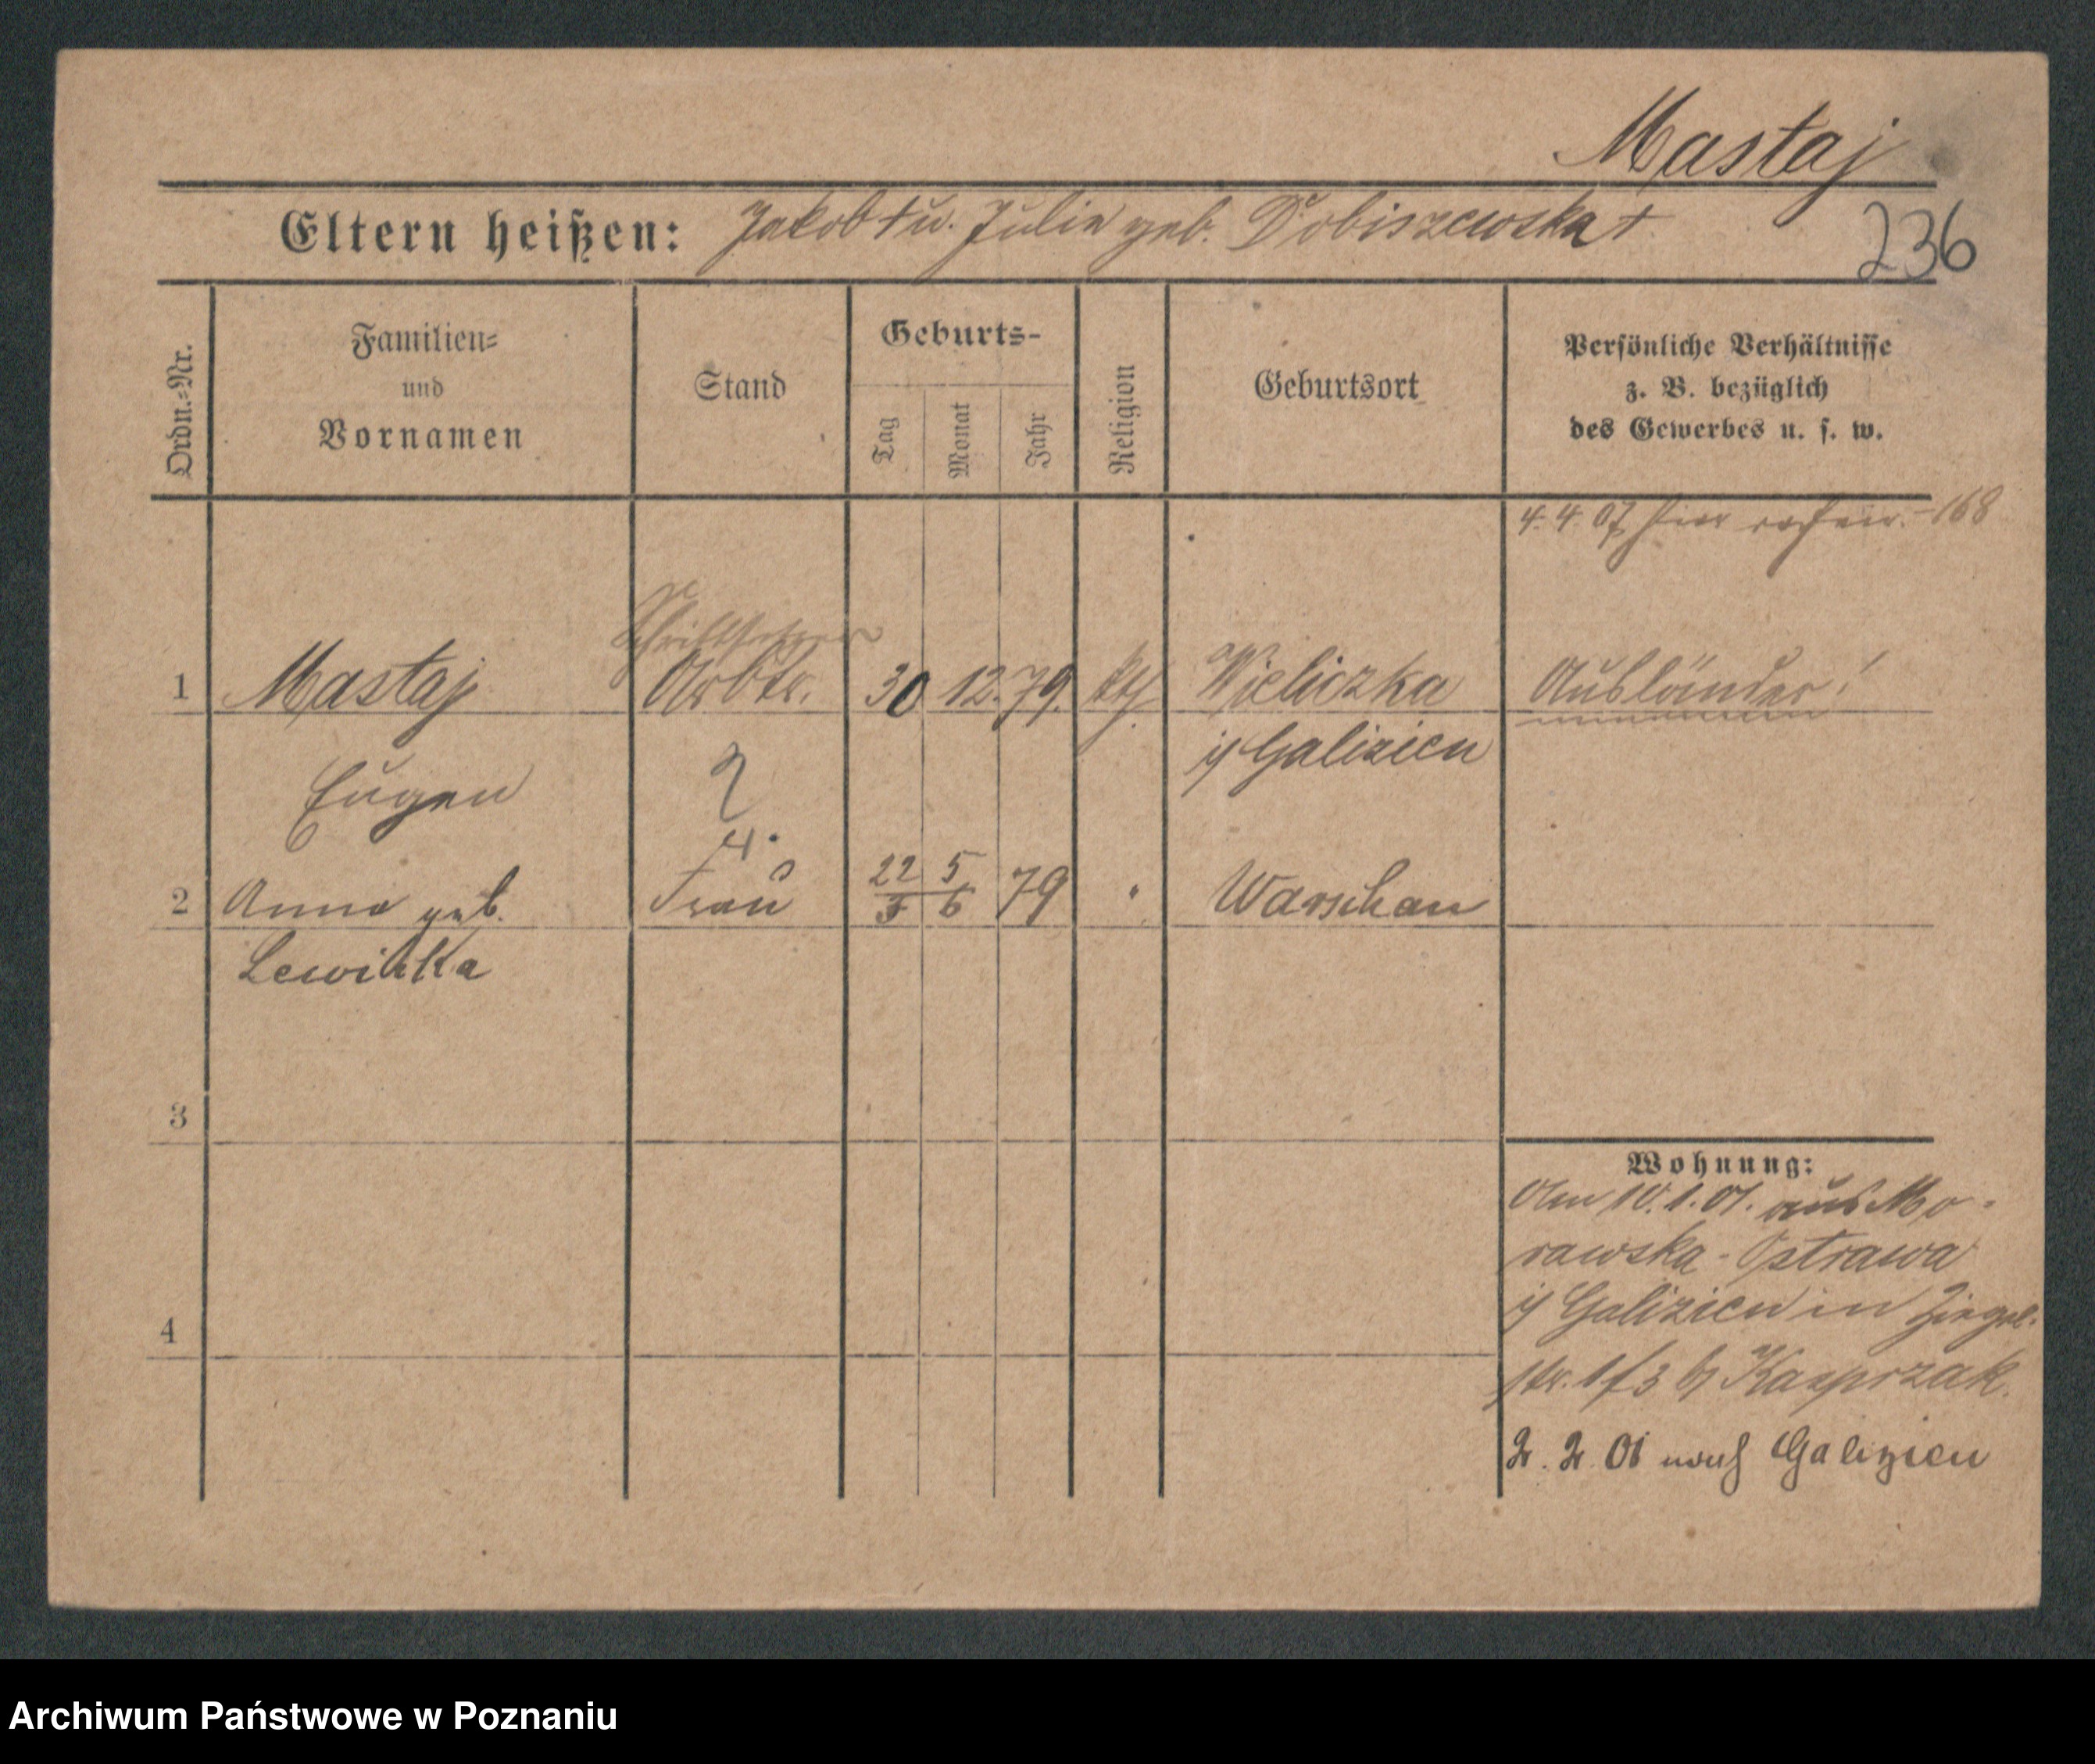 Mastaj
Eltern heißen: Jakob † u. Julie geb. Dobiszewska †
236
Ordn.-Nr.
Familien-
und
Vornamen
Stand
Geburts-
Tag
Monat
Jahr
Religion
Geburtsort
Persönliche Verhältnisse
z. B. bezüglich
des Gewerbes u. s. w.
4. 4. 07 hier 168
Schriftsetzer
1 Mastaj Arbtr. 30 12. 79. kth. Wieliczka Ausländer!
i/ Galizien
Eugen
4.
22 5
2 Anna geb. Frau 3 6 79 " Warschau
Lewinka
3
Wohnung:
Am 10. 1. 01. aus Mo-
rawska-Ostrawa
i/ Galizien in Ziegel-
str. 1/3 b/ Kasprzak.
4
2. 2. 01 nach Galizien
Archiwum Państwowe w Poznaniu